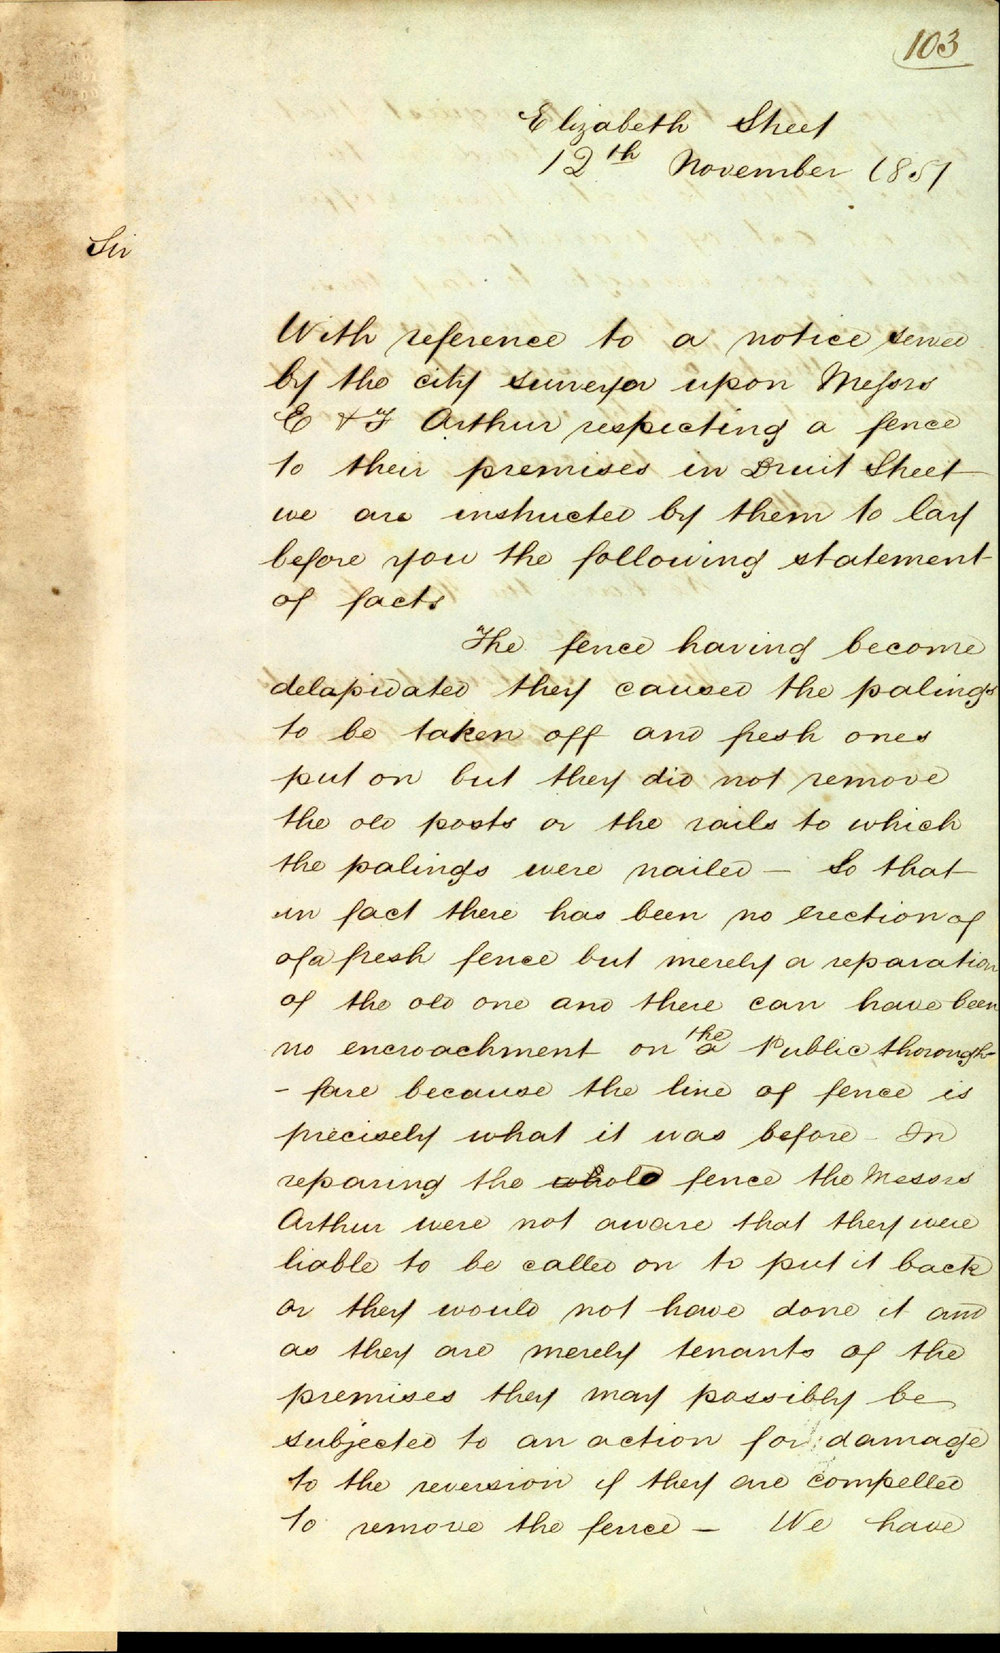 103
Elizabeth Street
12th November 1851
Sir
With reference to a notice served
by the city surveyor upon Messrs
E & F Arthur respecting a fence
to their premises in Druit Street
we are instructed by them to lay
before you the following statement
of facts
The fence having become
delapidated they caused the palings
to be taken off and fresh ones
put on but they did not remove
the old posts or the rails to which
the palings were nailed – So that
in fact there has been no erection of
of a fresh fence but merely a reparation
of the old one and there can have been
no encroachment on the a Public thorough-
- fare because the line of fence is
precisely what it was before – In
reparing the whole fence the Messrs
Arthur were not aware that they were
liable to be called on to put it back
or they would not have done it and
as they are merely tenants of the
premises they may possibly be
subjected to an action for damage
to the reversion if they are compelled
to remove the fence – We have